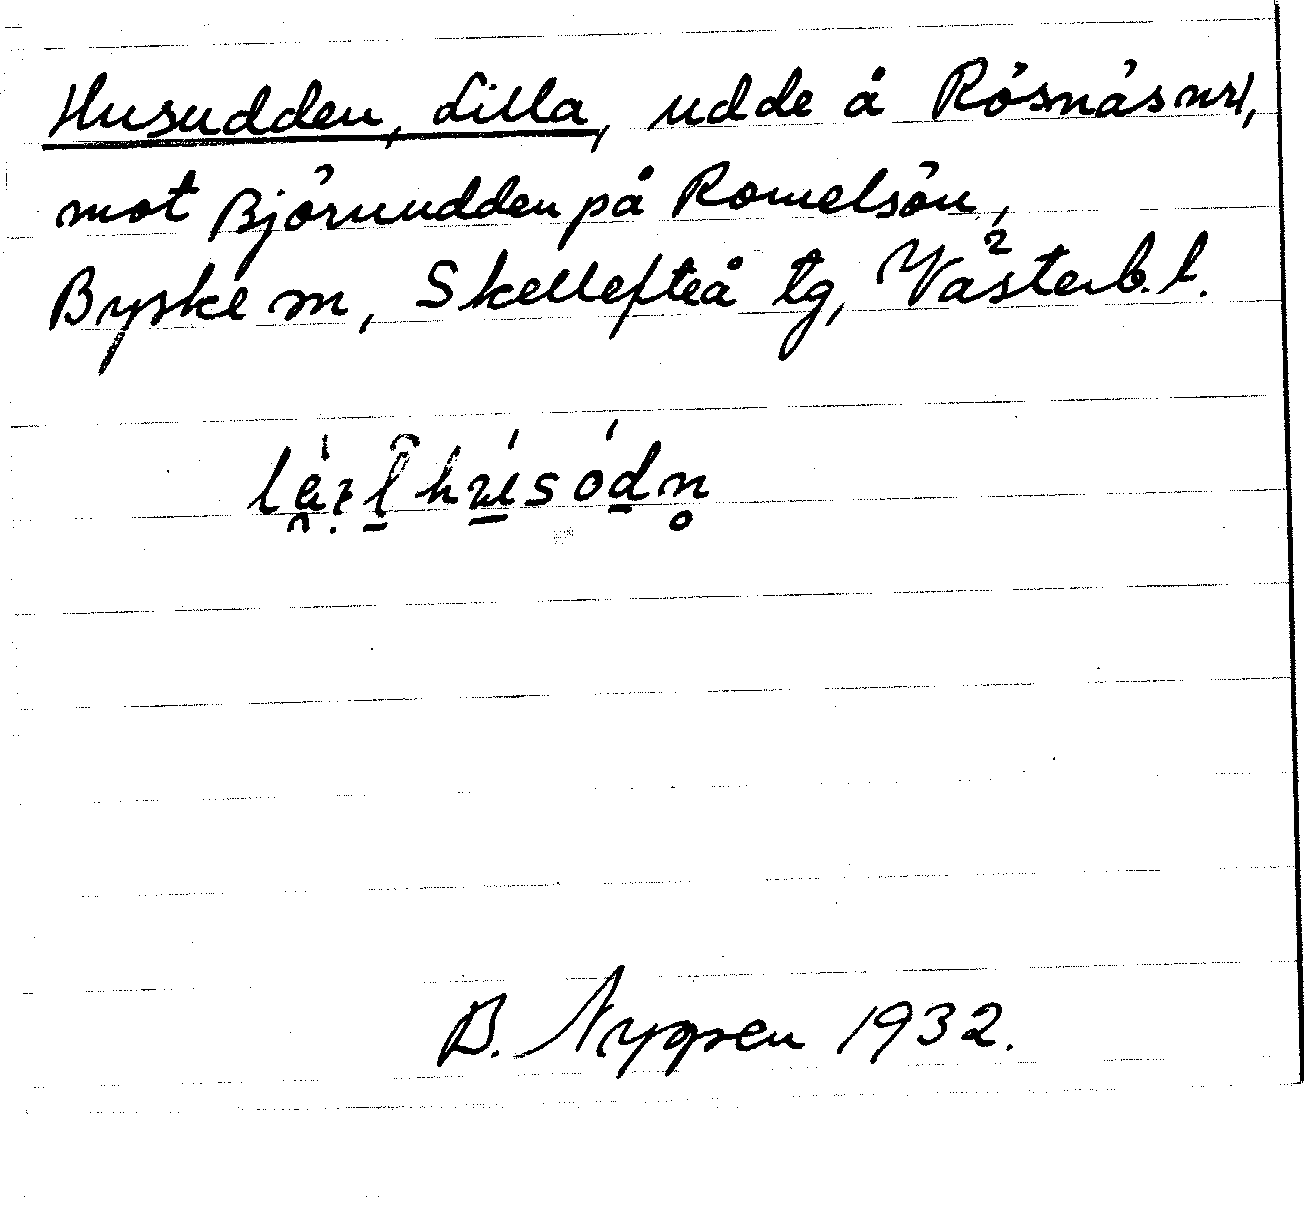 Husudden, Lilla, udde å Rösnäs nr 1,
mot Björnudden på Romelsön,
Byske sn, Skellefteå tg, Västerb. l.
B. Nygren 1932.